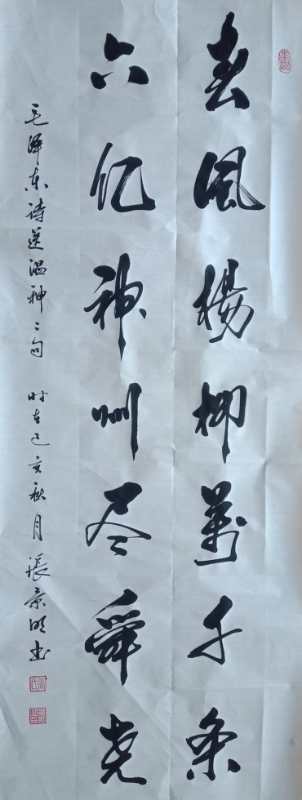 春风楊柳萬千条
六亿神州尽舜尧
毛泽东诗送瘟神二句 时在己亥秋月 張京明书